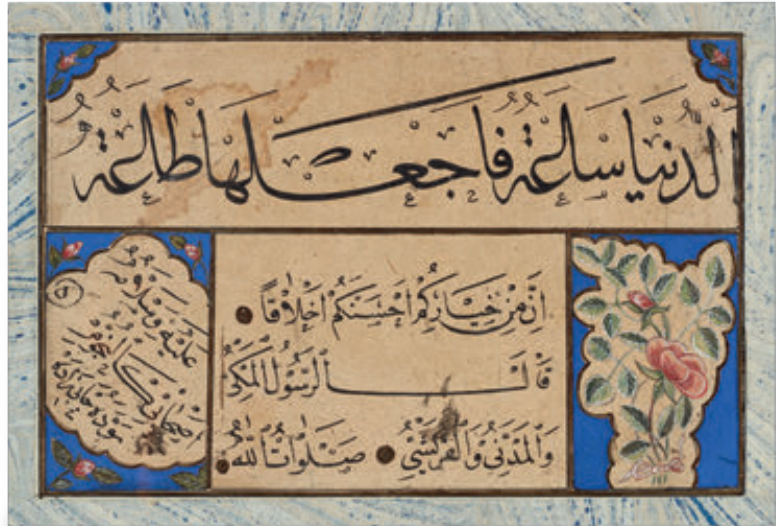 الدنيا ساعة فاجعلها طاعة
ان من خياركم احسنكم اخلاقا
قال الرسول المكي
والمدني والقرشي صلوات الله
عليه وسلامه